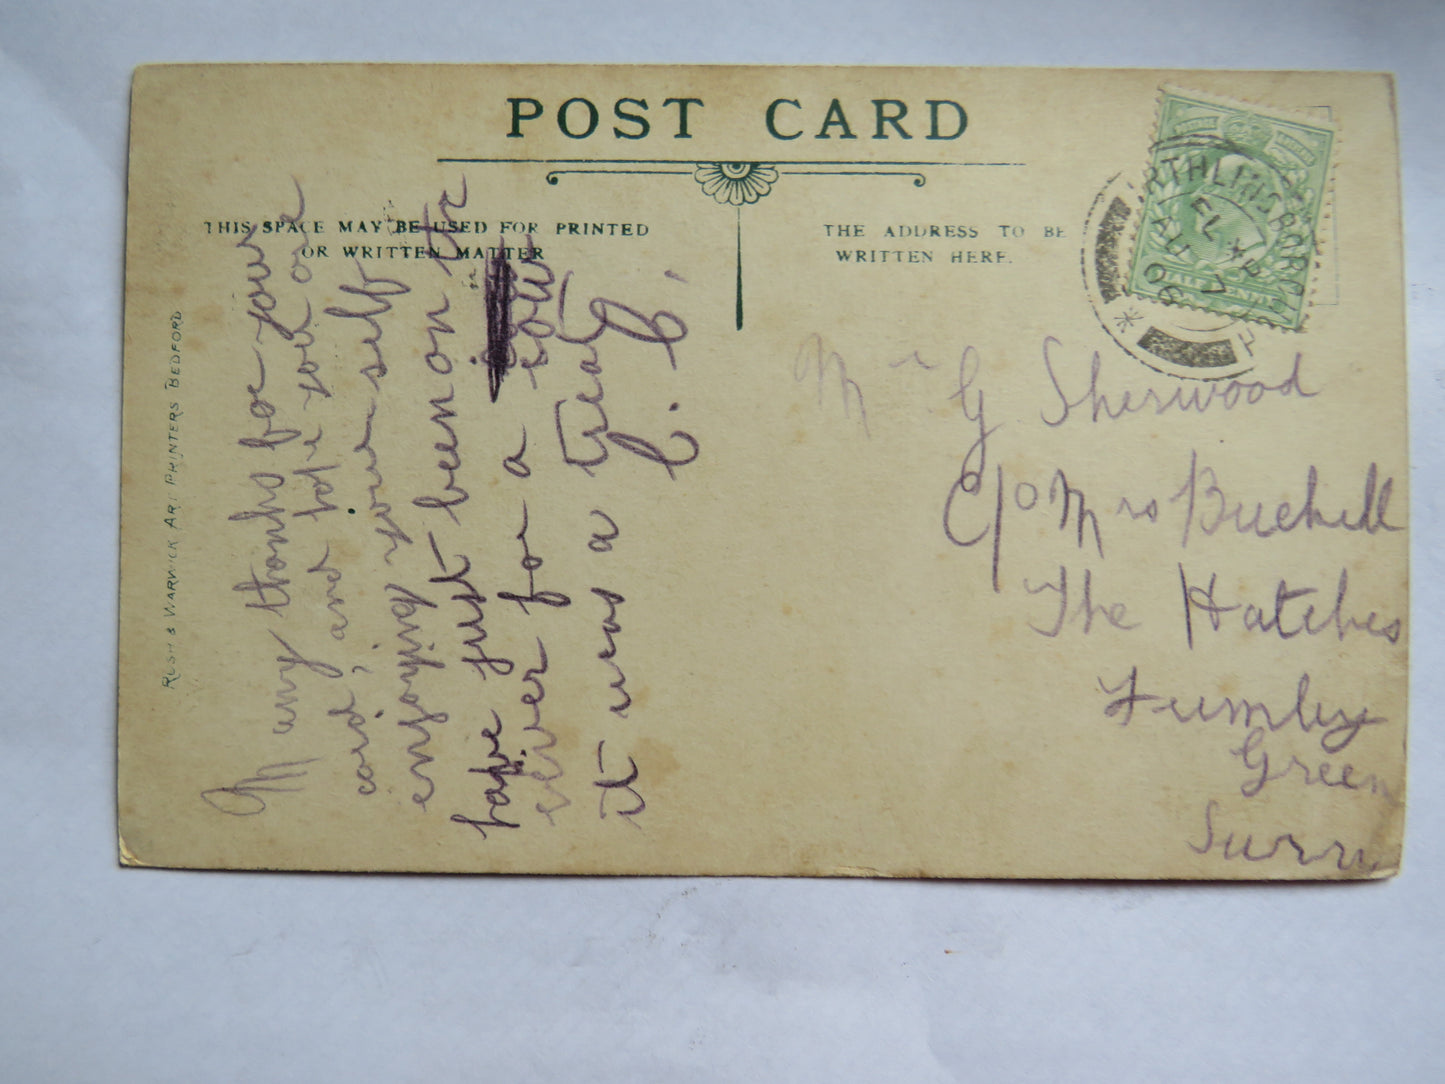 POST CARD
THIS SPACE MAY BE USED FOR PRINTED
OR WRITTEN MATTER
THE ADDRESS TO BE
WRITTEN HERE.
RTHLINGBORO
AU 7
06
RUSH & WARWICK ART PRINTERS BEDFORD
Many thanks for your
card, and hope you are
enjoying your self
have just been on the
river for a row
it was a treat
C. C.
Mr G Sherwood
C/o Mrs Buckell
The Hatches
Frimley
Green
Surry